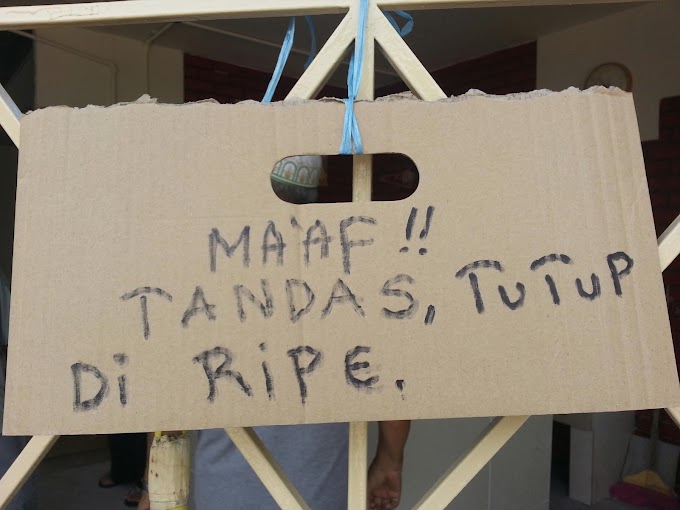 MA'AF !!
TANDAS, TUTUP
Di RiPE.